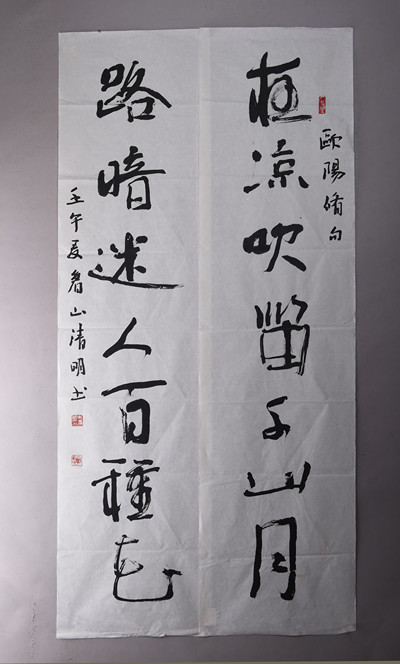 歐陽脩句
夜凉吹笛千山月
路暗迷人百種花
壬午夏山清明书